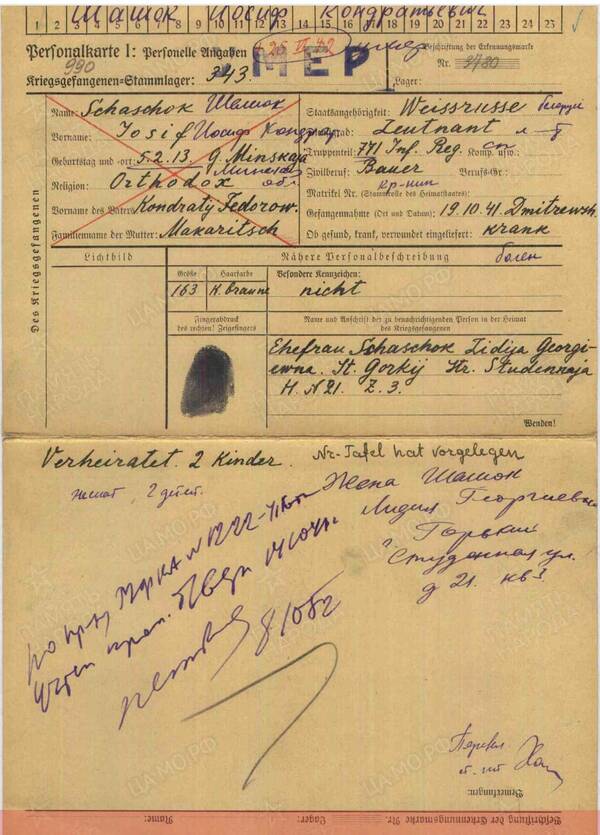 Шашок Иосиф Кондратьевич
1 2 3 4 5 6 7 8 9 10 11 12 13 14 15 16 17 18 19 20 21 22 23 24 25
Personalkarte I: Personelle Angaben
990
25 VI 42
умер
МЕР
Beschriftung der Erkennungsmarke
Nr. 3780
Kriegsgefangenen-Stammlager: 343. Lager:
Des Kriegsgefangenen
Name: Schaschok Шашок
Vorname: Iosif Иосиф Кондрат
Geburtstag und -ort: 5.2.13. g. Minskaja
Минская обл
Religion: Orthodox
Vorname des Vaters: Kondratij Fedorow.
Familienname der Mutter: Makaritsch
Staatsangehörigkeit: Weissrusse
Dienstgrad: Leutnant л-т
Truppenteil: 771 Inf. Reg. сп Komp. usw.:
Zivilberuf: Bauer Berufs-Gr.:
кр-нин
Matrikel Nr. (Stammrolle des Heimatstaates):
Gefangennahme (Ort und Datum): 19.10.41. Dmitrewsk.
Ob gesund, krank, verwundet eingeliefert: krank
болен
Lichtbild
Nähere Personalbeschreibung
Größe Haarfarbe Besondere Kennzeichen:
163 H. braune nicht
Fingerabdruck
des rechten! Zeigefingers
Name und Anschrift der zu benachrichtigenden Person in der Heimat
des Kriegsgefangenen
Ehefrau Schaschok Lidija Georgi-
ewna. St. Gorkij Str. Studennaja
H. N 21. Z. 3.
Wenden!
Verheiratet. 2 Kinder. Nr-Tafel hat vorgelegen
женат, 2 детей.
Жена Шашок
Лидия Георгиевна
г Горький
Студенная ул.
д 21. кв
Перевел
Bemerkungen:
Name: Lager: Beschriftung der Erkennungsmarke Nr.
ЦАМО.РФ
ПАМЯТЬ НАРОДА